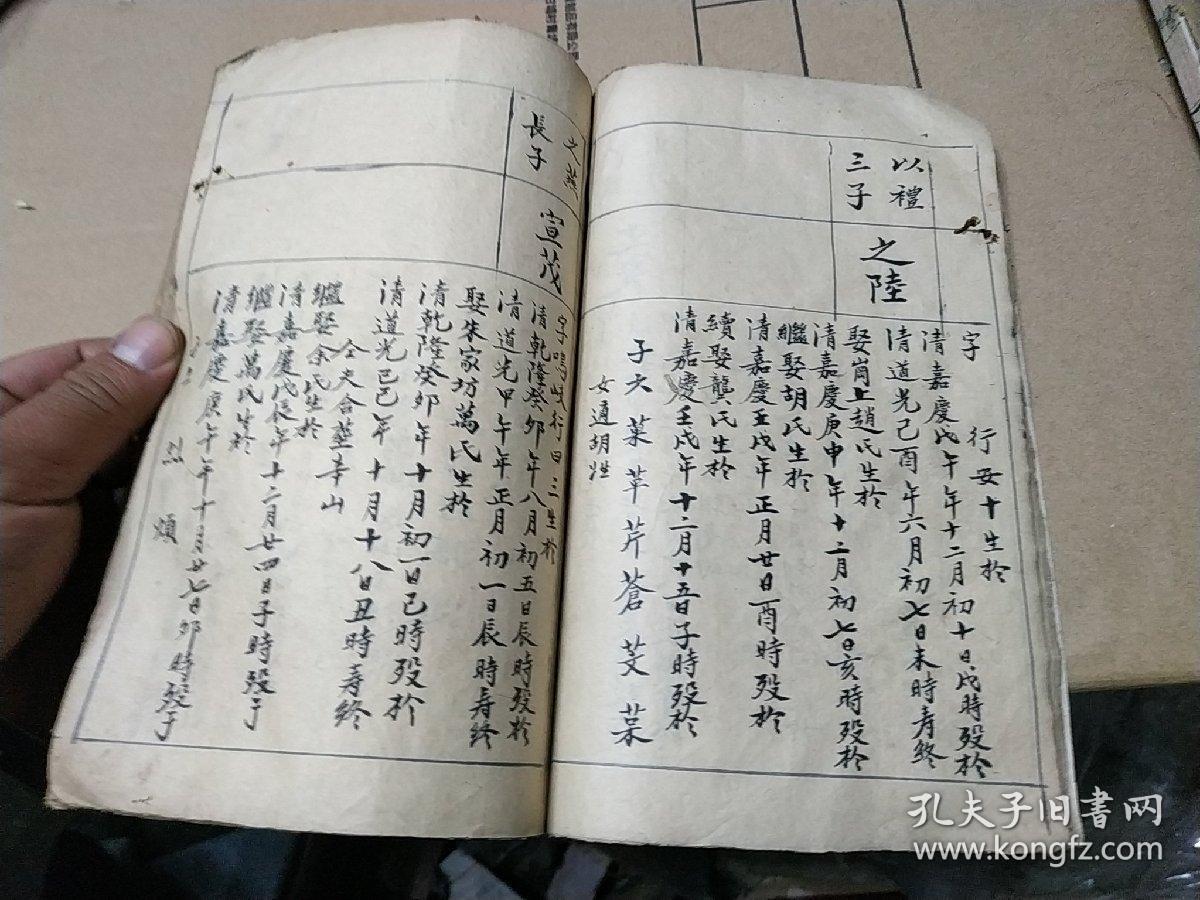 以禮
三子
之陸
字 行安十生於
清嘉慶戊午年十二月初十日戌時殁於
清道光己酉年六月初七日未時寿終
娶肖上趙氏生於
清嘉慶庚申年十二月初七日亥時殁於
繼娶胡氏生於
清嘉慶壬戌年正月廿日酉時殁於
續娶龔氏生於
清嘉慶壬戌年十二月十五日子時殁於
子大菓草芹蒼芟菜
女適胡姓
之燕
長子
宣茂
字鳴岐行曰三生於
清乾隆癸卯年八月初五日辰時殁於
清道光甲午年正月初一日辰時寿終
娶朱家坊萬氏生於
清乾隆癸卯年十月初一日己時殁於
清道光己巳年十月十八日丑時寿終
仝夫合塟寺山
繼娶余氏生於
清嘉慶戊辰年十二月廿四日子時殁于
繼娶萬氏生於
清嘉慶庚午年十月廿七日卯時殁于
孔夫子旧书网
www.kongfz.com